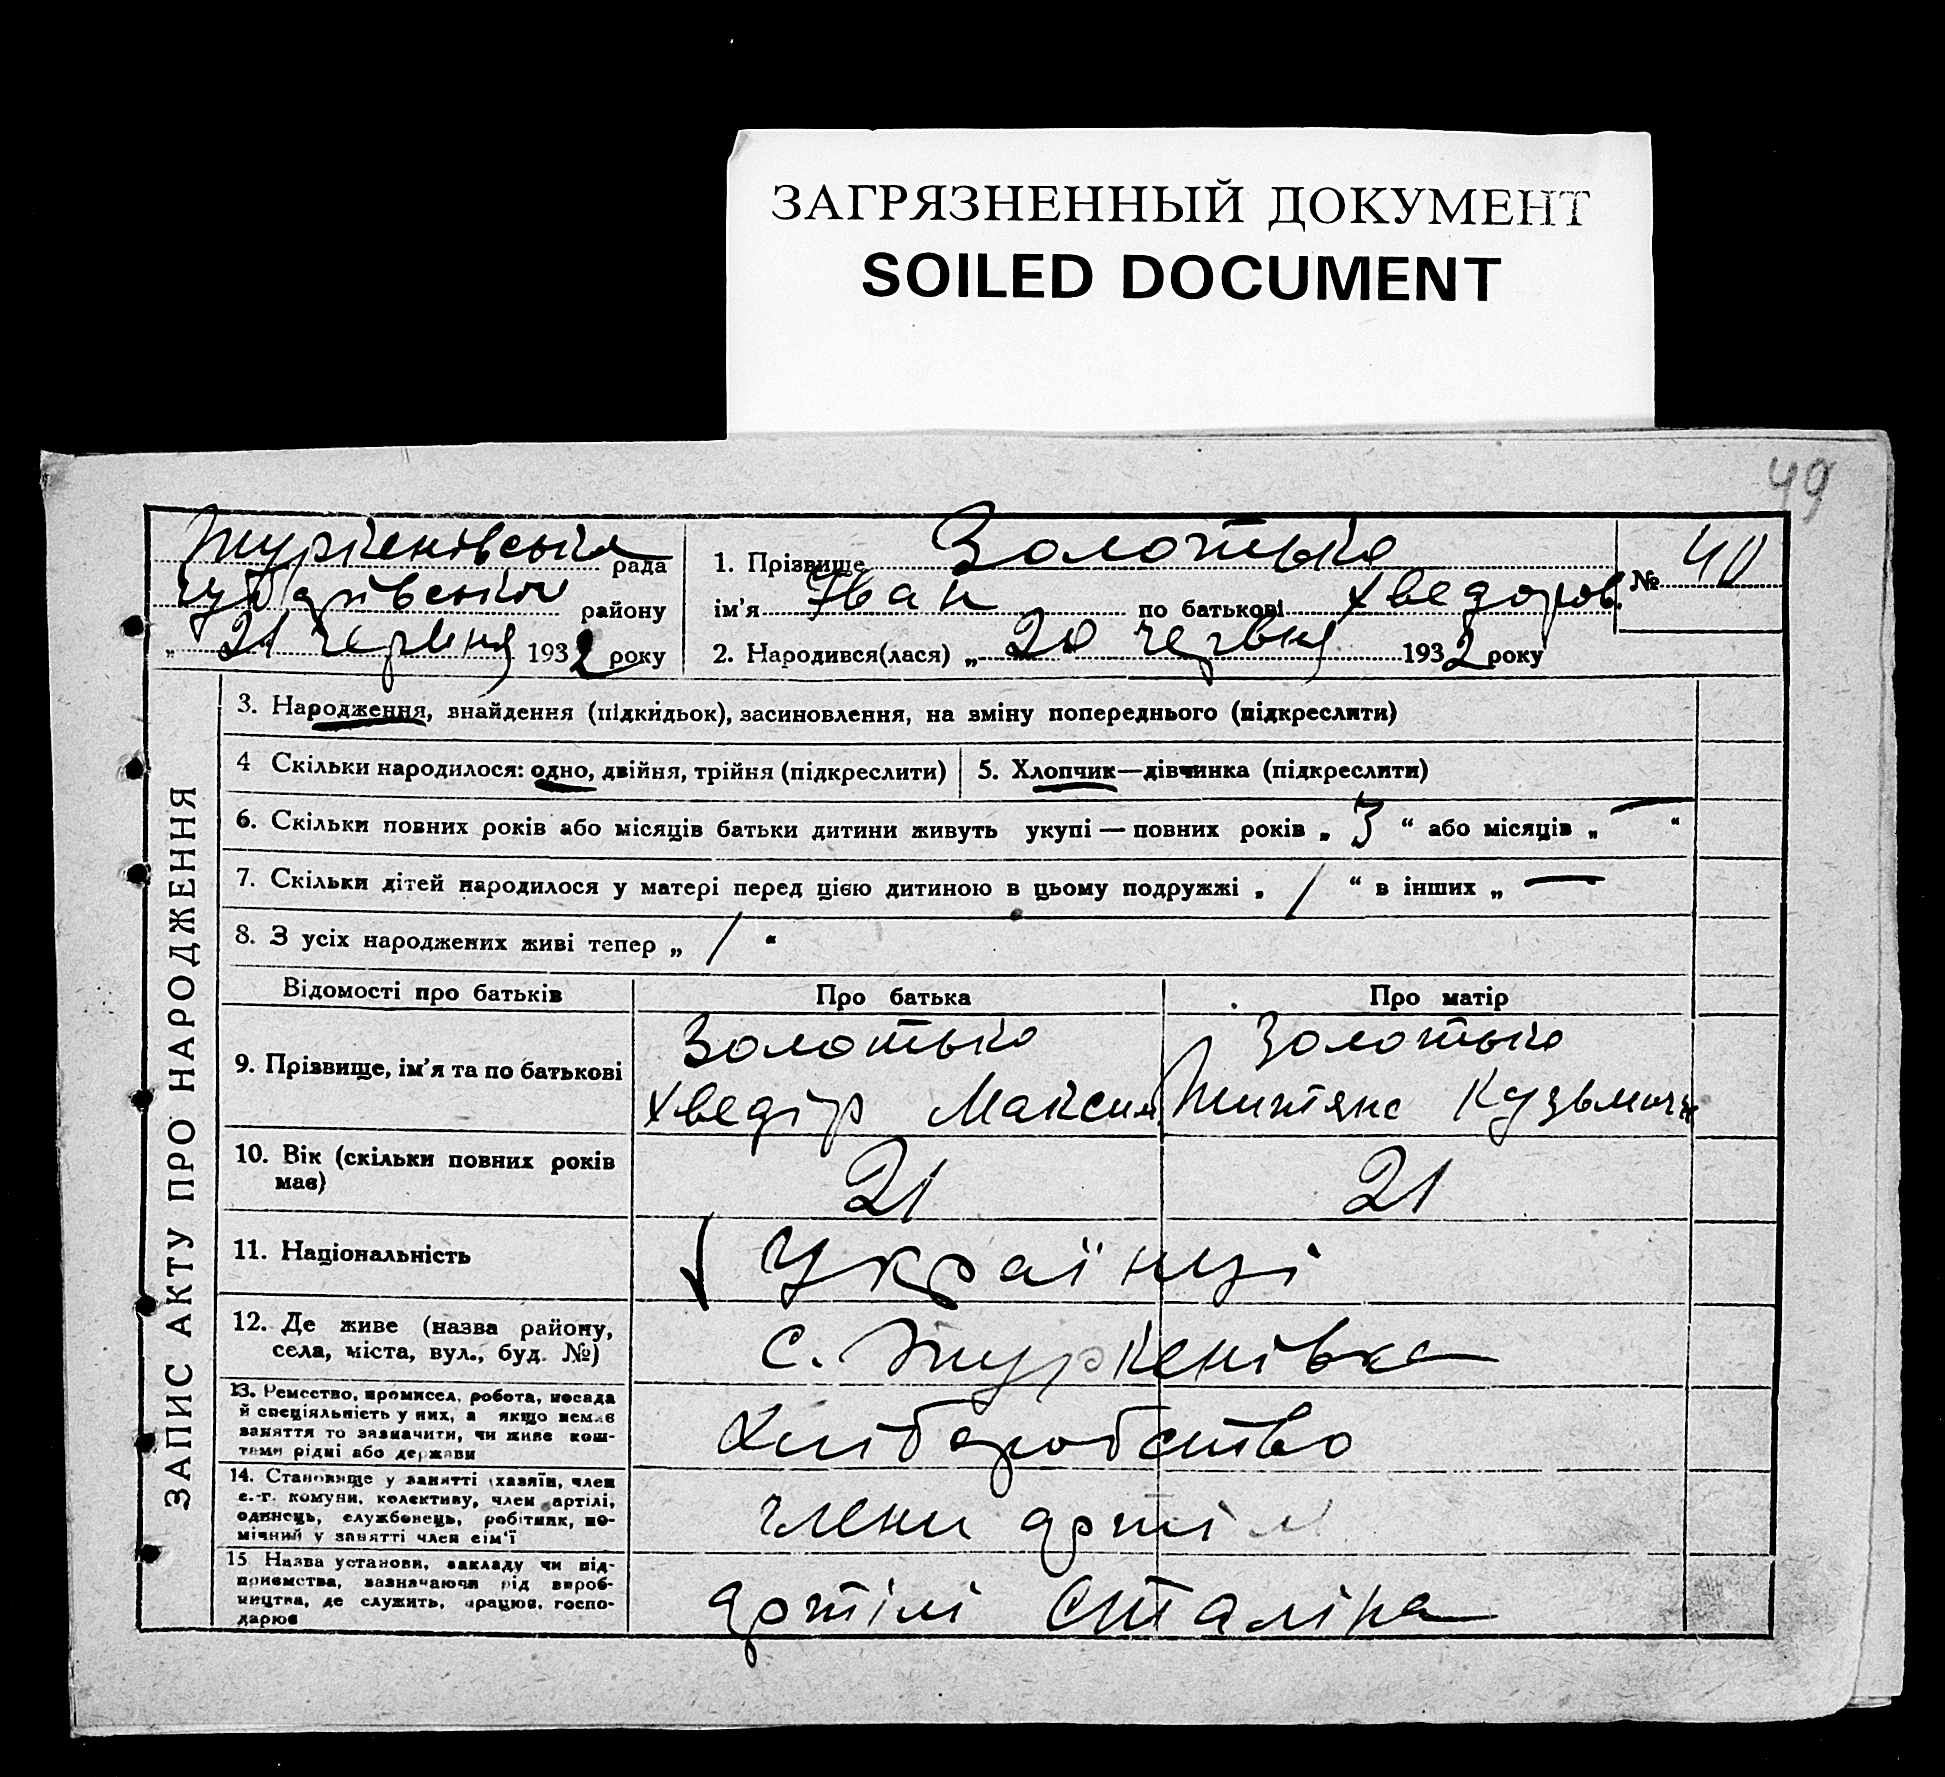 ЗАГРЯЗНЕННЫЙ ДОКУМЕНТ
SOILED DOCUMENT
49
Туркенівська рада
району
„ 21 червня 1932 року
1. Прізвище Золотько
ім’я Іван по батькові Хведоров.
2. Народився(лася) „ 20 червня 1932 року
№ 40
ЗАПИС АКТУ ПРО НАРОДЖЕННЯ
3. Народження, знайдення (підкидьок), засиновлення, на зміну попереднього (підкреслити)
4 Скільки народилося: одно, двійня, трійня (підкреслити)
5. Хлопчик—дівчинка (підкреслити)
6. Скільки повних років або місяців батьки дитини живуть укупі — повних років „ 3 “ або місяців „ — “
7. Скільки дітей народилося у матері перед цією дитиною в цьому подружжі „ 1 “ в інших „ —
8. З усіх народжених живі тепер „ 1 “
Відомості про батьків Про батька Про матір
9. Прізвище, ім’я та по батькові
Золотько Золотько
Хведір Максим Кузьмічн
10. Вік (скільки повних років
має)
21 21
11. Національність
Українці
12. Де живе (назва району,
села, міста, вул., буд. №)
с. Туркенівка
13. Ремество, промисел, робота, посада
й спеціяльність у них, а якщо немає
заняття то зазначити, чи живе кош-
тами рідні або держави
Хліборобство
14. Становище у занятті (хазяїн, член
с.-г. комуни, колективу, член артілі,
одинець, службовець, робітник, по-
мічний у занятті член сім’ї
члени артіл
15 Назва установи, закладу чи під-
приємства, зазначаючи рід вироб-
ництва, де служить, працює, госпо-
дарює
артілі Сталіна